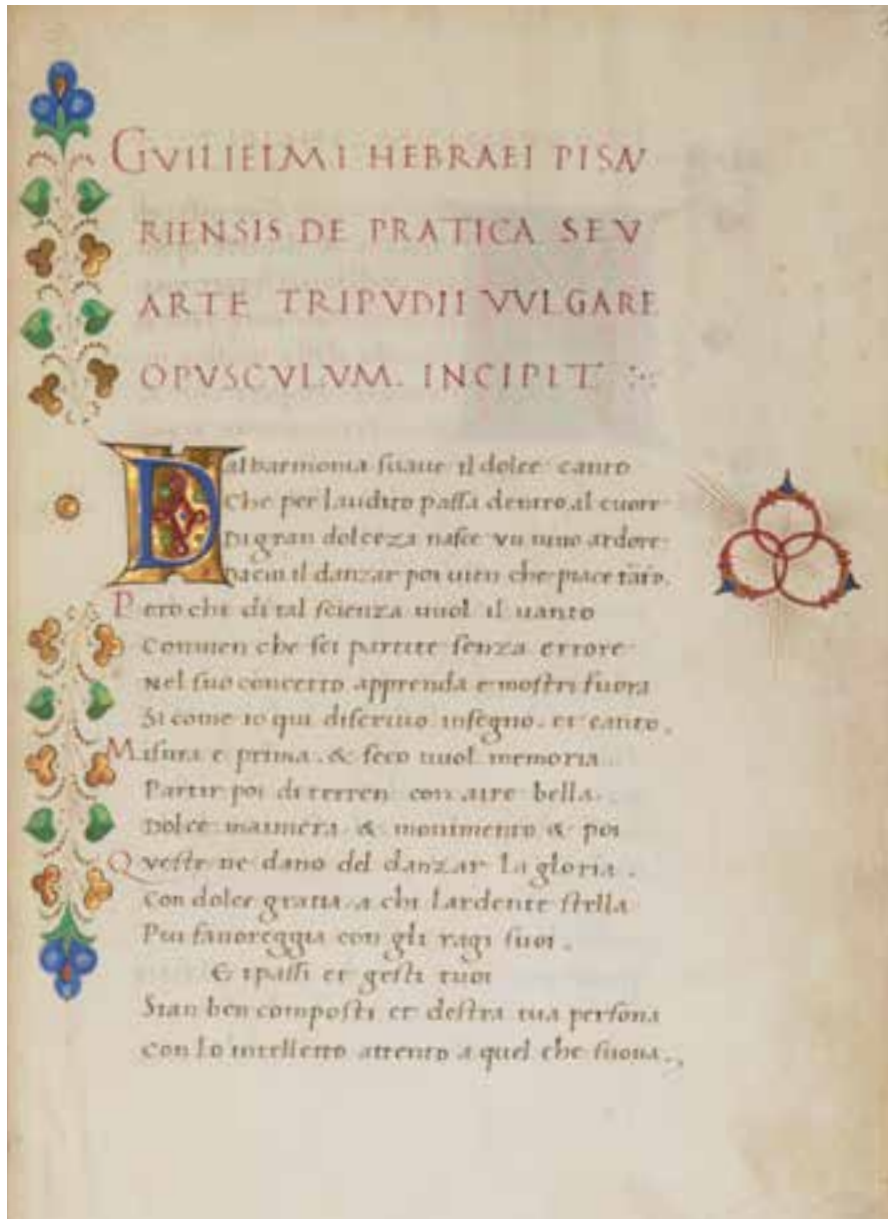 GVILIELMI HEBRAEI PISAV
RIENSIS DE PRATICA SEV
ARTE TRIPVDII VVLGARE
OPVSCVLVM. INCIPIT
Dalharmonia suaue il dolce canto
Che per laudito passa dentro al cuore
Di gran dolceza nasce vn uiuo ardore
Da cui il danzar poi uien che piace tāto.
Pero chi di tal scienza uuol il uanto
Conuien che sei partite senza errore
Nel suo concetto apprenda e mostri fuora
Si come io qui discriuo insegno. et canto.
Misura e prima. & seco uuol memoria
Partir poi di terren con aire bella.
Dolce mainera & mouimento & poi
Queste ne dano del danzar la gloria.
Con dolce gratia. a chi lardente stella
Piu fauoreggia con gli ragi suoi.
E i passi et gesti tuoi
Sian ben composti et destra tua persona
Con lo intelletto attento a quel che suona.